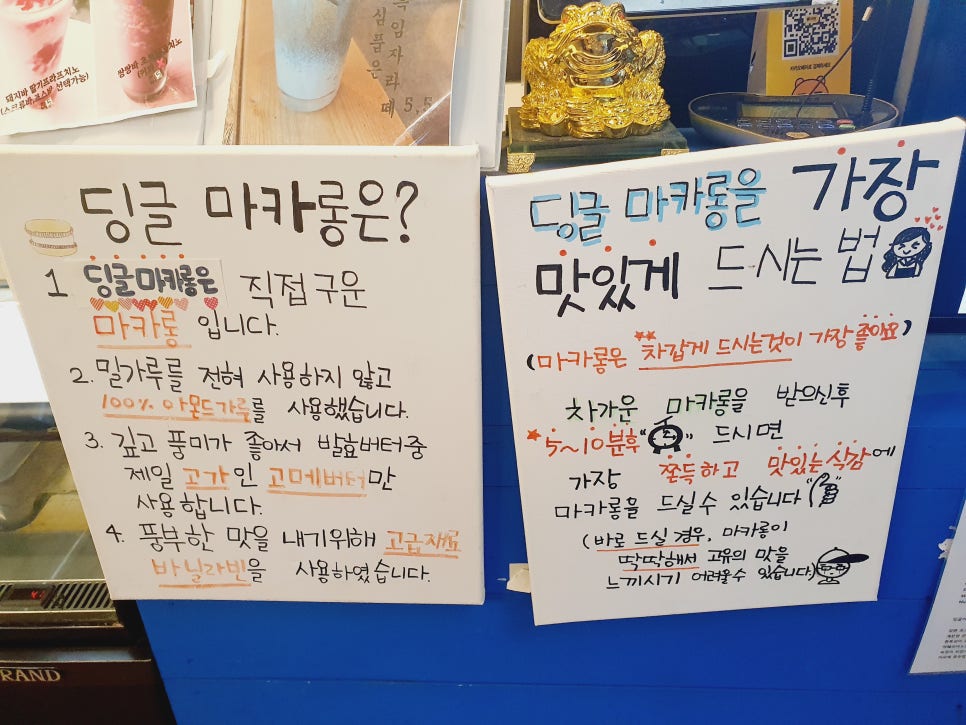 돼지바 딸기프라프치노
심품은
흑임자라떼
5.5
딩글 마카롱은?
1 딩글마카롱은 직접구운
마카롱 입니다.
2. 밀가루를 전혀 사용하지 않고
100% 아몬드가루를 사용했습니다.
3. 깊고 풍미가 좋아서 발효버터중
제일 고가인 고메버터만
사용합니다.
4. 풍부한 맛을 내기위해 고급재료
바닐라빈을 사용하였습니다.
딩글 마카롱을 가장
맛있게 드시는 법
(마카롱은 차갑게 드시는것이 가장 좋아요)
차가운 마카롱을 받으신후
*5~10분후 드시면
가장 쫀득하고 맛있는 식감에
마카롱을 드실수 있습니다
(바로 드실 경우, 마카롱이
딱딱해서 고유의 맛을
느끼시기 어려울수 있습니다)
RAND